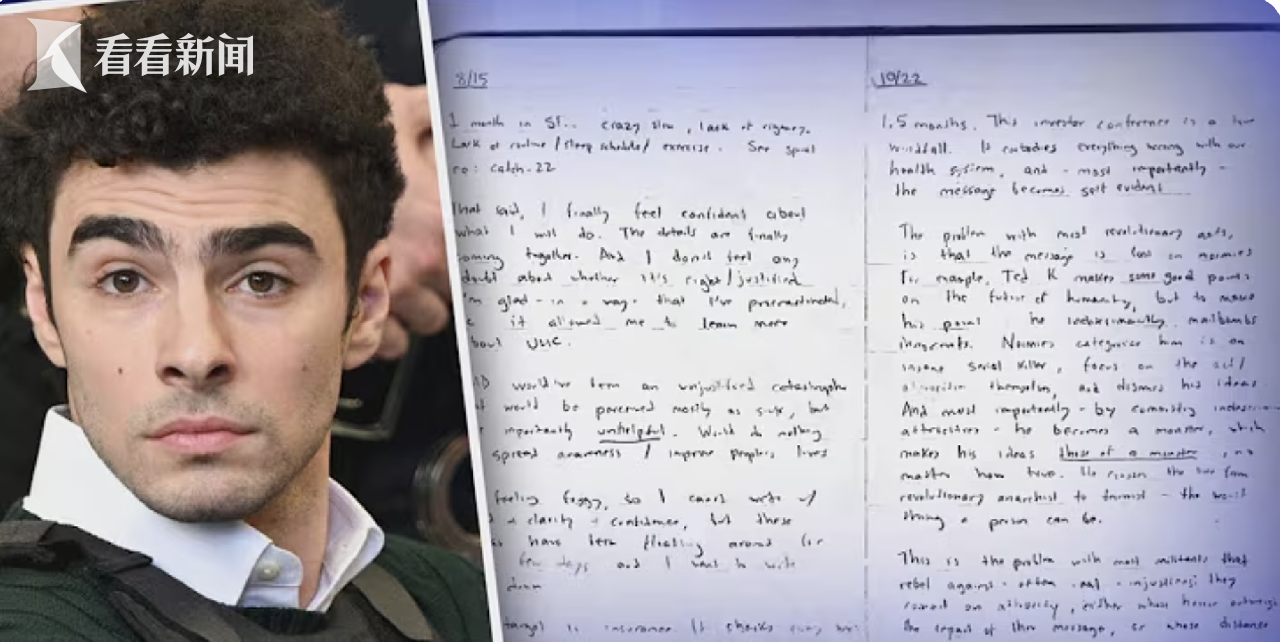 看看新闻
8/15
1 month in SF.. crazy slow, lack of
Lack of routine / sleep schedule / exercise. See
re: catch-22
that said, I finally feel confident about
what I will do. The details are finally
coming together. And I don't feel any
doubt about whether it's right / justified
I'm glad - in a way - that I've procrastinated,
it allowed me to learn more
about UHC.
would've been an unjustified catastrophe
would be perceived mostly as sick, but
importantly unhelpful. Would do nothing
spread awareness / improve people's lives
feeling foggy, so I can't write w/
clarity + confidence, but these
have been floating around for
few days and I want to write
down
target is insurance. It checks every
10/22
1.5 months. This investor conference is a true
windfall. It embodies everything wrong with our
health system, and - most importantly -
the message becomes self evident
The problem with most revolutionary acts,
is that the message is lost on normies
For example, Ted K makes some good points
on the future of humanity, but to make
his point he indiscriminately mailbombs
innocents. Normies categorize him as an
insane serial killer, focus on the act/
atrocities themselves, and dismiss his ideas.
And most importantly - by committing
atrocities - he becomes a monster, which
makes his ideas those of a monster, no
matter how true. He crosses the line from
revolutionary anarchist to terrorist - the worst
thing a person can be.
This is the problem with most militants that
rebel against - often real - injustices: they
commit an atrocity, either whose horror
the impact of their message, or whose distance